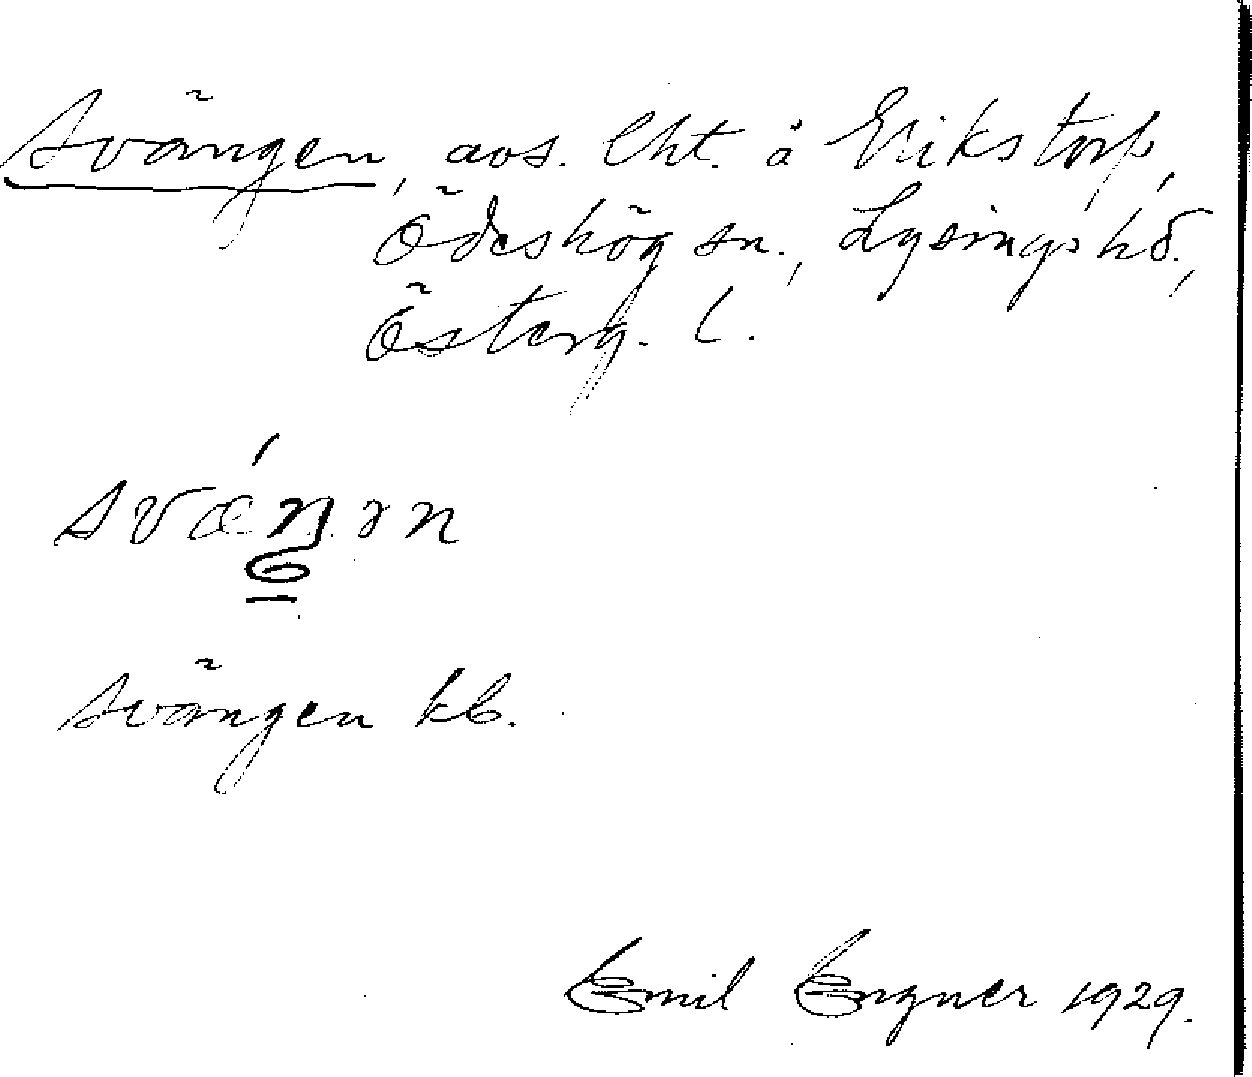 Svängen, avs. lht. å Erikstorp,
Ödeshög sn., Lysings hd.,
Österg. l.
sväŋən
Svängen kb.
Emil Engner 1929.